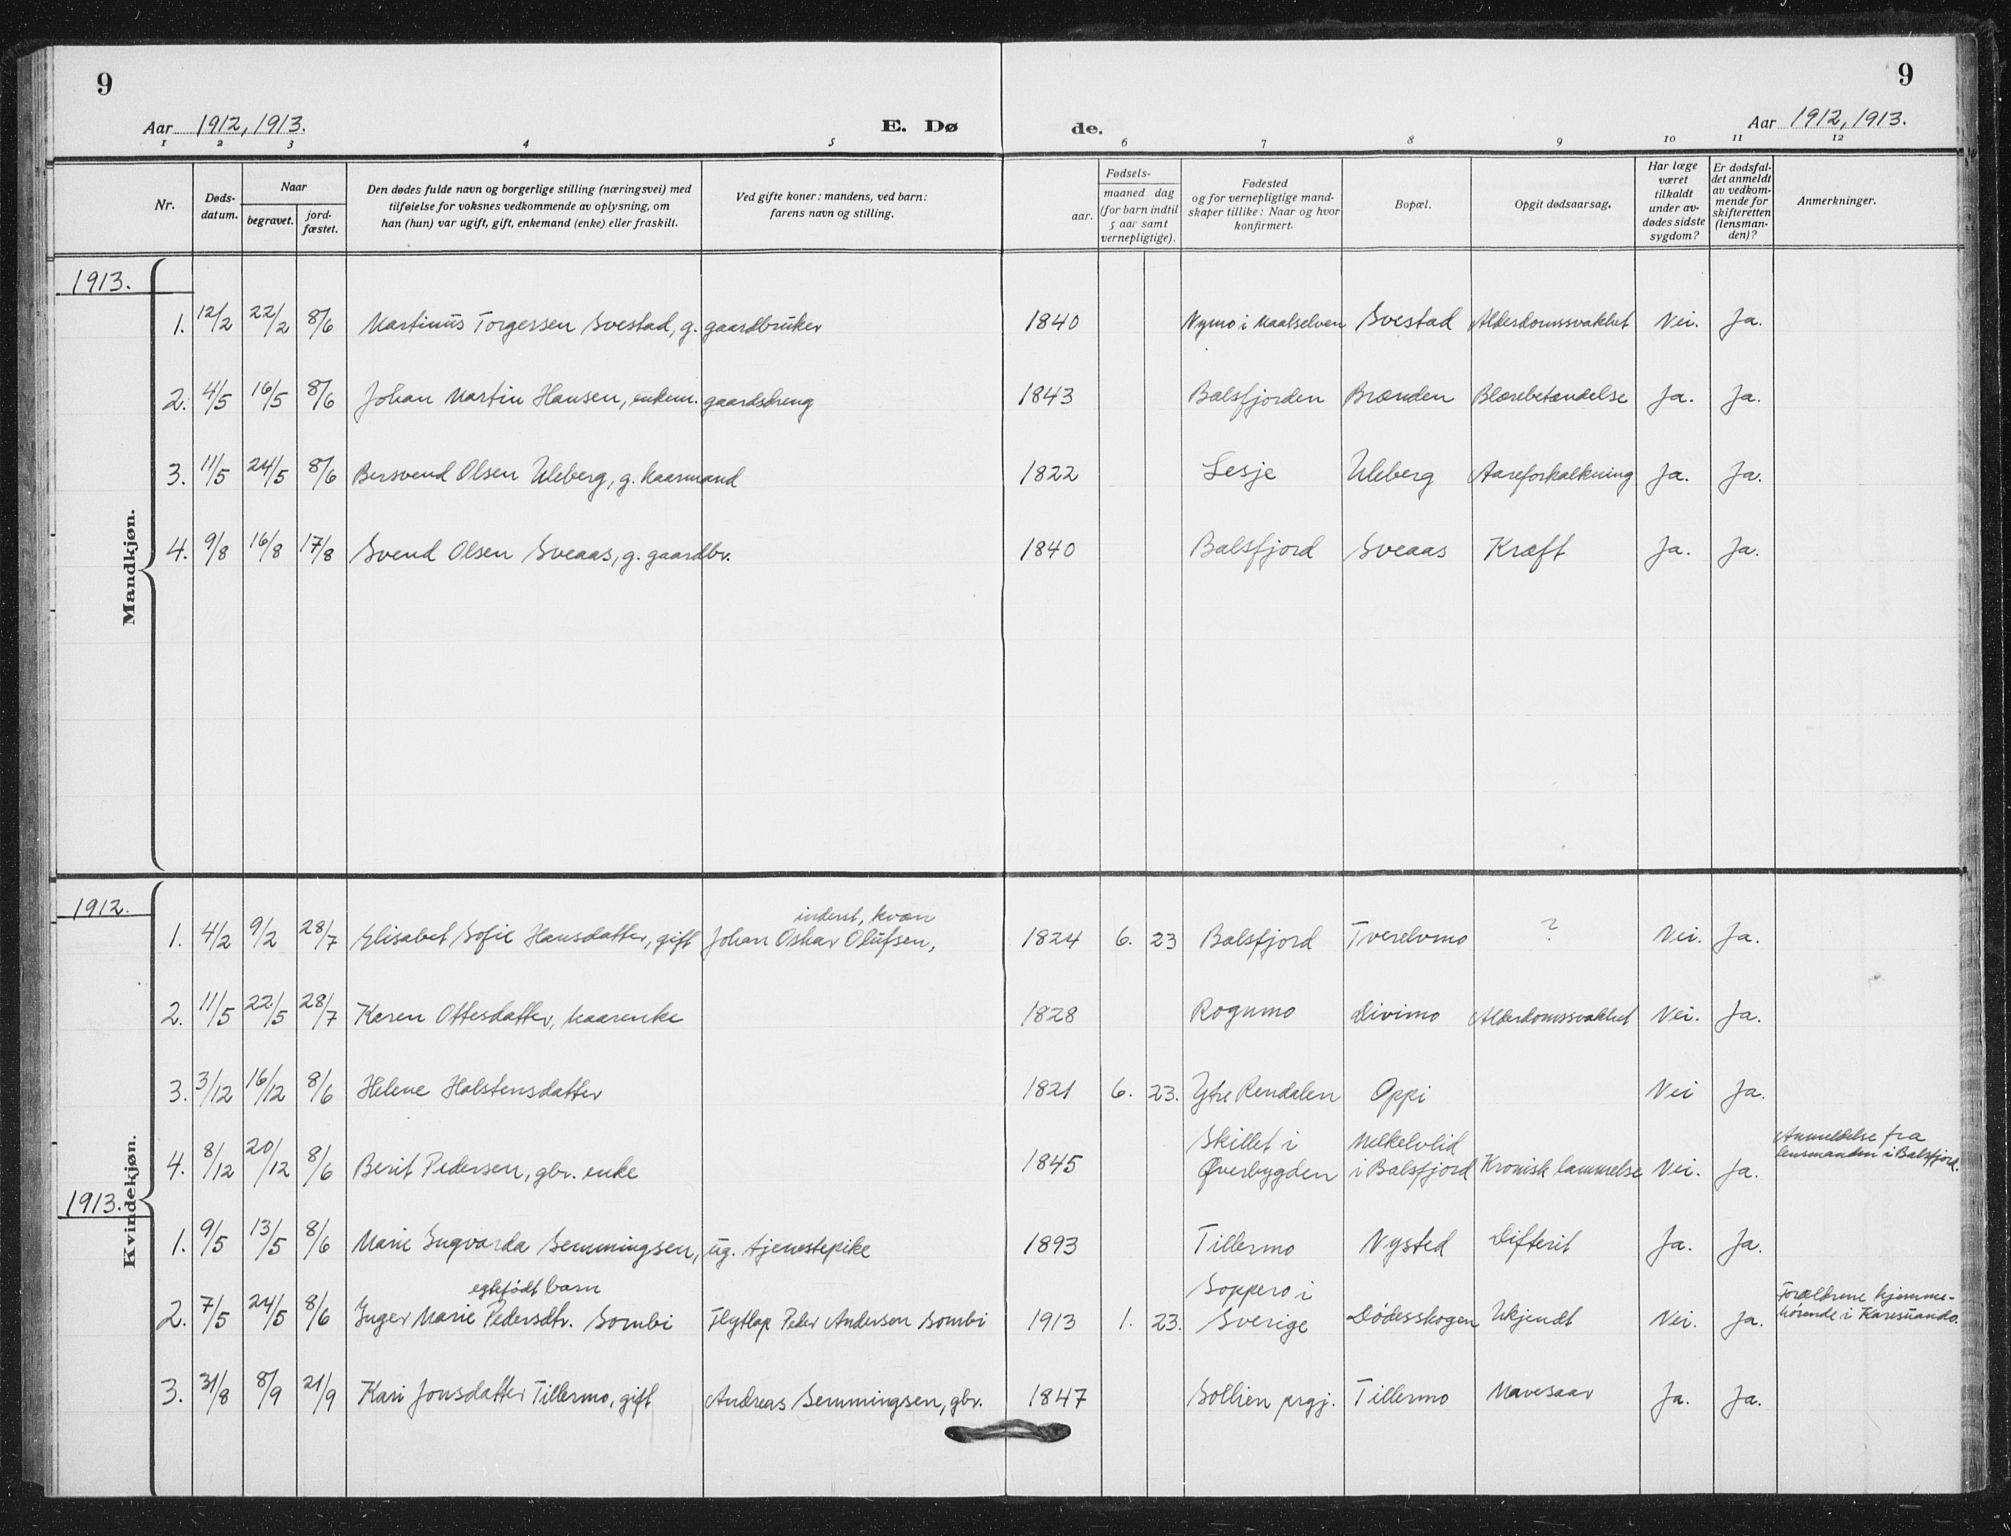 9
9
Aar 1912, 1913.
E. Dø de.
Aar 1912, 1913.
1 2 3 4 5 6 7 8 9 10 11 12
Nr.
Døds-
datum.
Naar
begravet.
jord-
fæstet.
Den dødes fulde navn og borgerlige stilling (næringsvei) med
tilføielse for voksnes vedkommende av oplysning, om
han (hun) var ugift, gift, enkemand (enke) eller fraskilt.
Ved gifte koner: mandens, ved barn:
farens navn og stilling.
aar.
Fødsels-
maaned dag
(for barn indtil
5 aar samt
vernepligtige).
Fødested
og for vernepligtige mand-
skaper tillike: Naar og hvor
konfirmert.
Bopæl.
Opgit dødsaarsag.
Har læge
været
tilkaldt
under av-
dødes sidste
sygdom?
Er dødsfal-
det anmeldt
av vedkom-
mende for
skifteretten
(lensman-
den)?
Anmerkninger.
Mandkjøn.
1913.
1. 12/2 22/2 8/6 Martinus Torgessen Svestad, g. gaardbruker 1840 Nymo i Maalselven Svestad Alderdomssvakhet Nei. Ja.
2. 4/5 16/5 8/6 Johan Martin Hansen, enkem. gaardsdreng 1843 Balsfjorden Brænden Blærebetændelse Ja. Ja.
3. 11/5 24/5 8/6 Bersvend Olsen Uleberg, g. kaarmand 1822 Lesje Uleberg Aareforkalkning Ja. Ja.
4. 9/8 16/8 17/8 Svend Olsen Sveaas, g. gaardbr. 1840 Balsfjord Sveaas Kræft Ja. Ja.
Kvindekjøn.
1912.
inderst, kvæn
1. 4/2 9/2 28/7 Elisabet Sofie Hansdatter, gift Johan Oskar Olufsen, 1824 6. 23 Balsfjord Tverelvmo ? Nei. Ja.
2. 11/5 22/5 28/7 Karen Ottesdatter, kaarenke 1828 Rognmo Divimo Alderdomssvakhet Nei. Ja.
3. 3/12 16/12 8/6 Helene Halstensdatter 1821 6. 23. Ytre Rendalen Oppi Nei Ja.
4. 8/12 20/12 8/6 Berit Pedersen, gbr. enke 1845 Skillet i
Øverbygden
i Balsfjord Kronisk lammelse Nei. Ja. Anmeldelse fra
lensmanden i Balsfjord.
1913.
1. 9/5 13/5 8/6 Marie Ingvarda Semmingsen, ug. tjenestepike 1893 Tillermo Nysted Difterit Ja. Ja.
egtefødt barn
2. 7/5 24/5 8/6 Inger Marie Pedersdtr. Sombi Flytlap Peder Andersen Sombi 1913 1. 23. Soppero i
Sverige Dødesskogen Ukjendt Nei. Ja. Forældrene hjemme-
hørende i Karesuando.
3. 31/8 8/9 21/9 Kari Jonsdatter Tillermo, gift Andreas Semmingsen, gbr. 1847 Sollien prgj. Tillermo Mavesaar Ja. Ja.